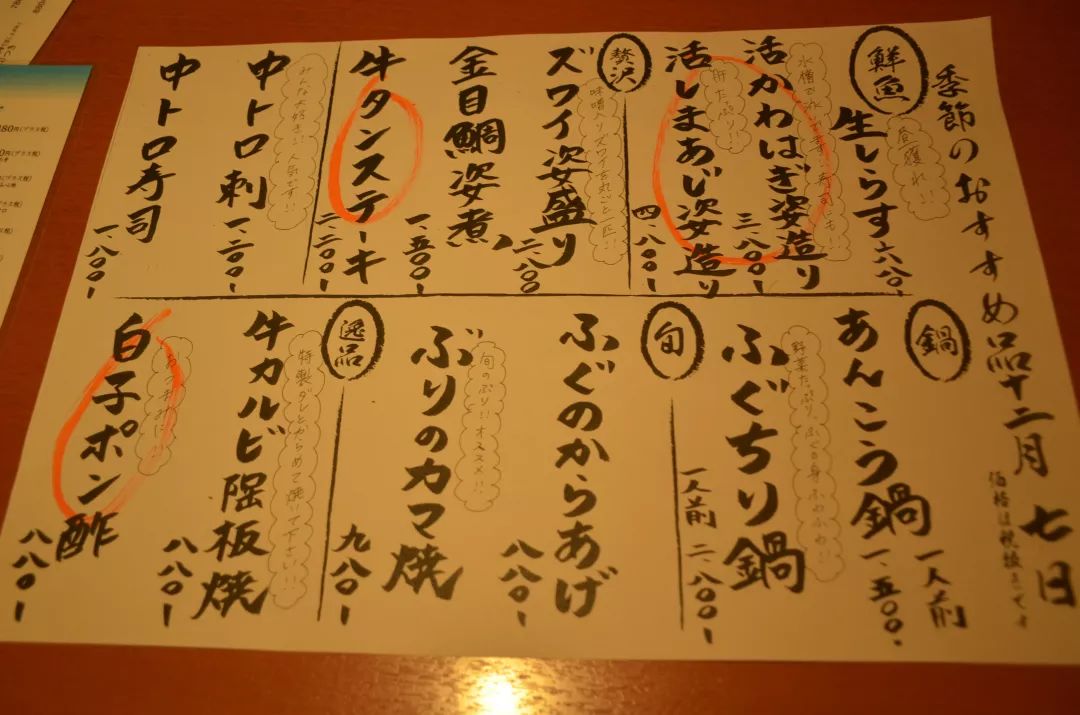 季節のおすすめ品十二月七日
価格は税抜きです
鮮魚
生しらす 六八〇、
昼獲れ!!
活かわはぎ姿造り 三、八〇〇ー
肝たっぷり!!
活しまあじ姿造り 四、八〇〇ー
贅沢
ズワイ姿盛り 二、八〇〇
味噌入りズワイを丸ごと一匹!!
金目鯛姿煮 一、五〇〇ー
牛タンステーキ 二、二〇〇ー
中トロ刺 一、二〇〇ー
みんな大好き!!人気です!!
中トロ寿司 一、八〇〇ー
鍋
あんこう鍋 一人前 一、五〇〇、
ふぐちり鍋 一人前 二、八〇〇ー
野菜たっぷり、ふぐの身ふわふわ!!
旬
ふぐのからあげ 八八〇ー
ぶりのカマ焼 九八〇ー
旬のぶり!!オススメ!!
逸品
牛カルビ陶板焼 八八〇ー
特製ダレとからめて焼いて下さい!!
白子ポン酢 八八〇ー